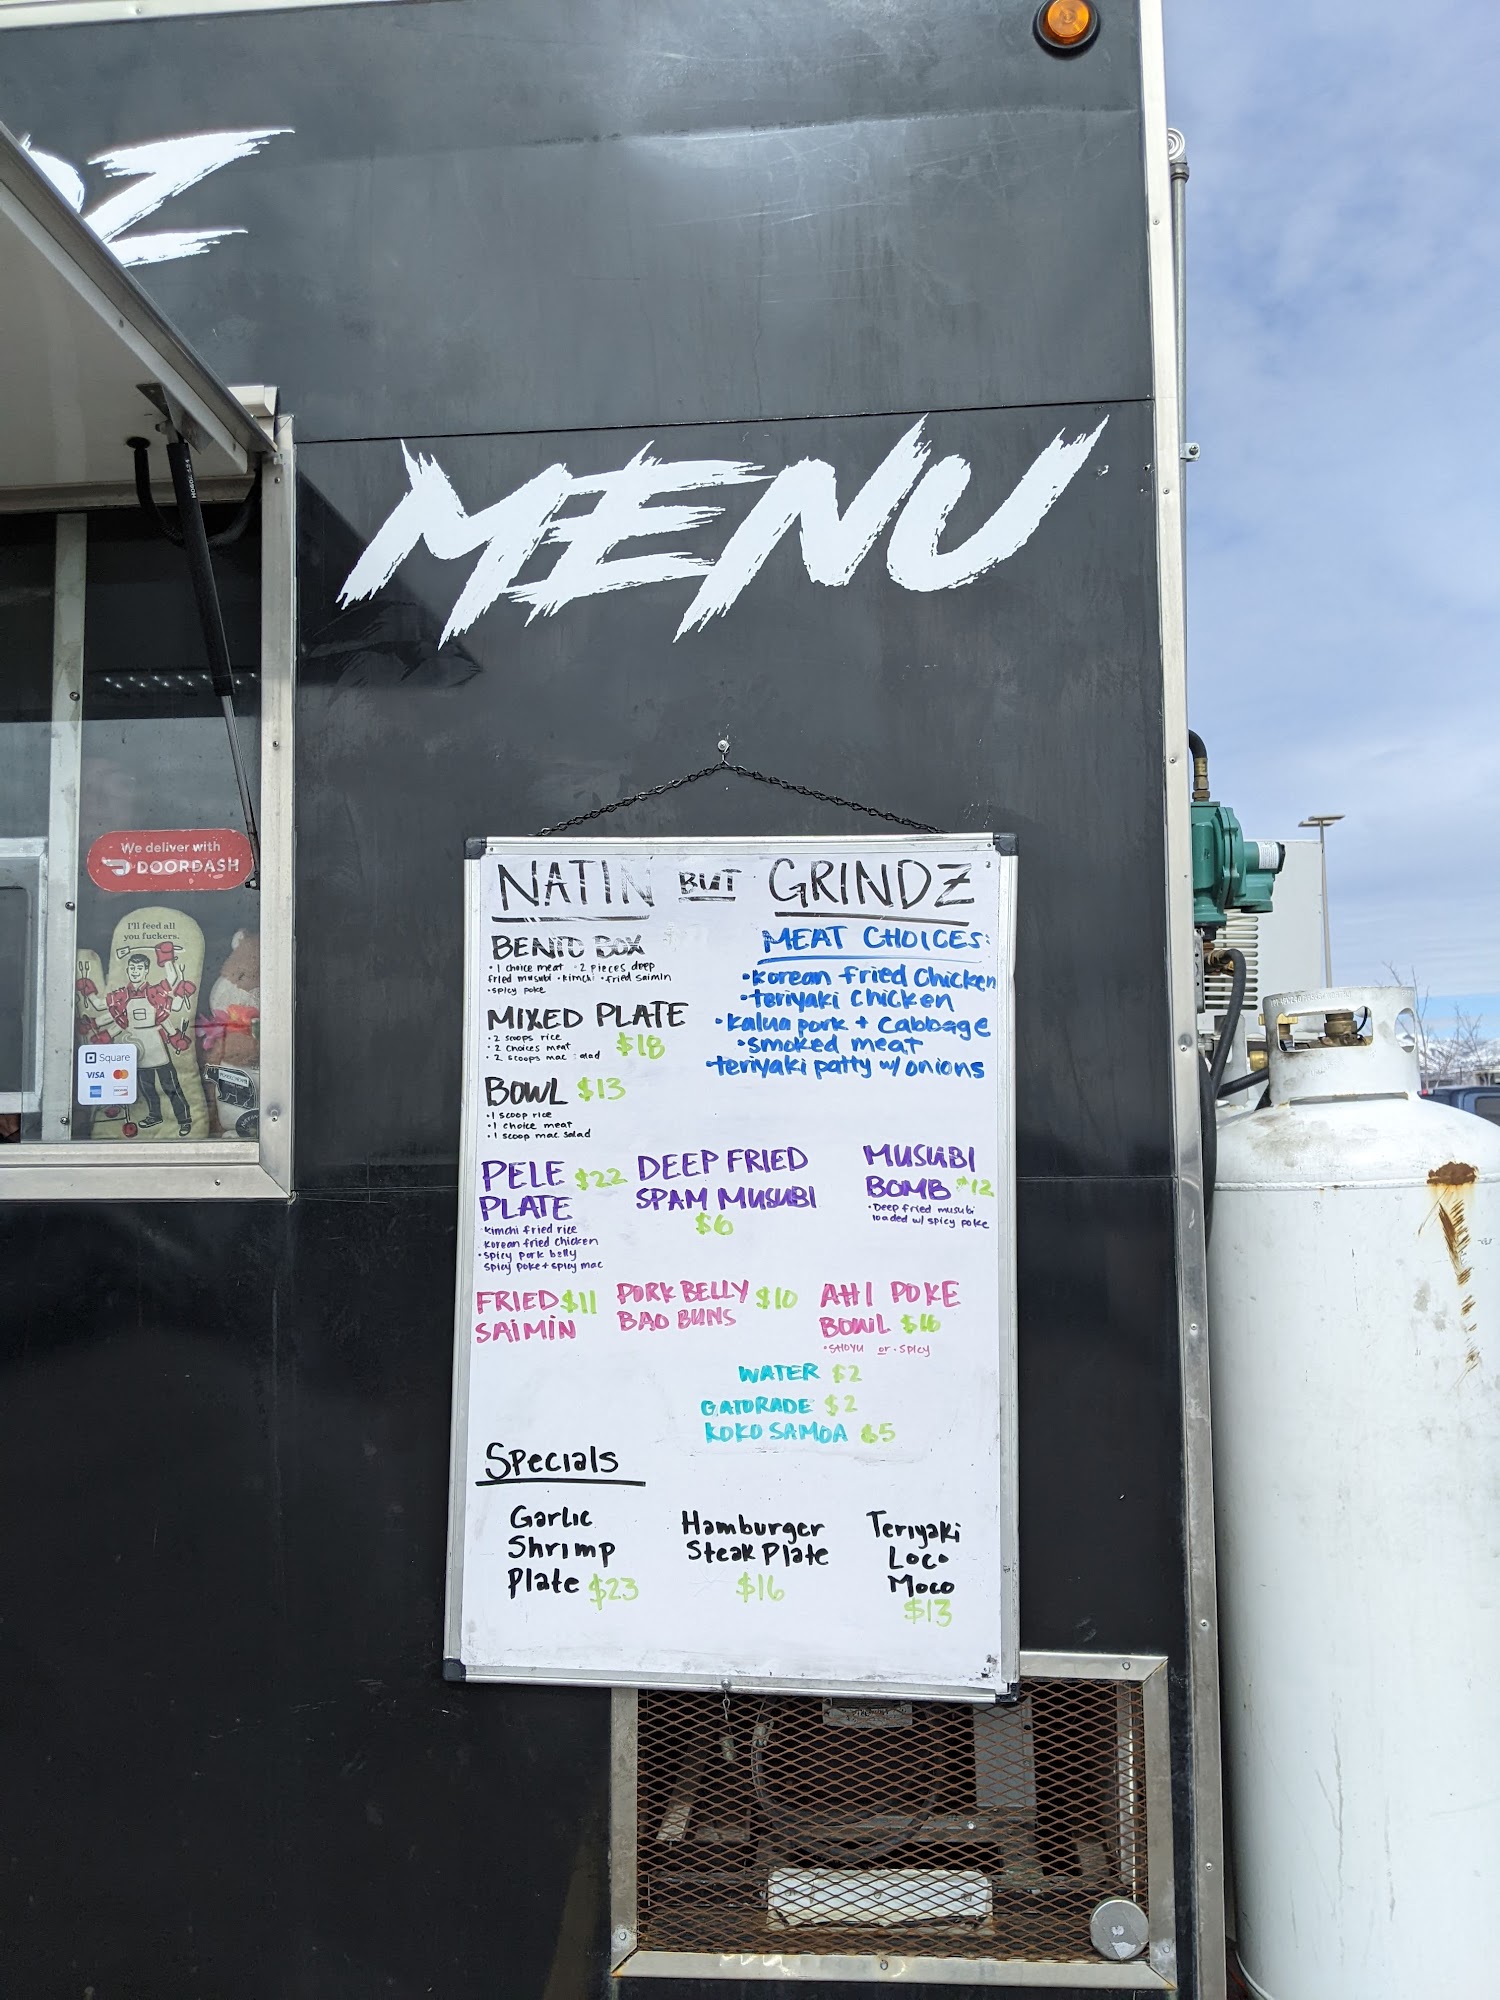 Z
MENU
We deliver with
DOORDASH
I'll feed all
you fuckers.
Square
VISA
NATIN BUT GRINDZ
BENTO BOX
• 1 choice meat • 2 pieces deep
fried musubi • kimchi • fried saimin
• spicy poke
MIXED PLATE
• 2 scoops rice
• 2 choices meat $18
• 2 scoops mac salad
BOWL $13
• 1 scoop rice
• 1 choice meat
• 1 scoop mac salad
MEAT CHOICES:
• Korean fried Chicken
• teriyaki chicken
• kalua pork + cabbage
• smoked meat
• teriyaki patty w/ onions
PELE $22
PLATE
kimchi fried rice
korean fried chicken
• spicy pork belly
spicy poke + spicy mac
DEEP FRIED
SPAM MUSUBI
$6
MUSUBI
BOMB $12
• Deep fried musubi
loaded w/ spicy poke
FRIED $11
SAIMIN
PORK BELLY $10
BAO BUNS
AHI POKE
BOWL $16
• SHOYU or • SPICY
WATER $2
GATORADE $2
KOKO SAMOA $5
Specials
Garlic
Shrimp
Plate $23
Hamburger
Steak Plate
$16
Teriyaki
Loco
Moco
$13